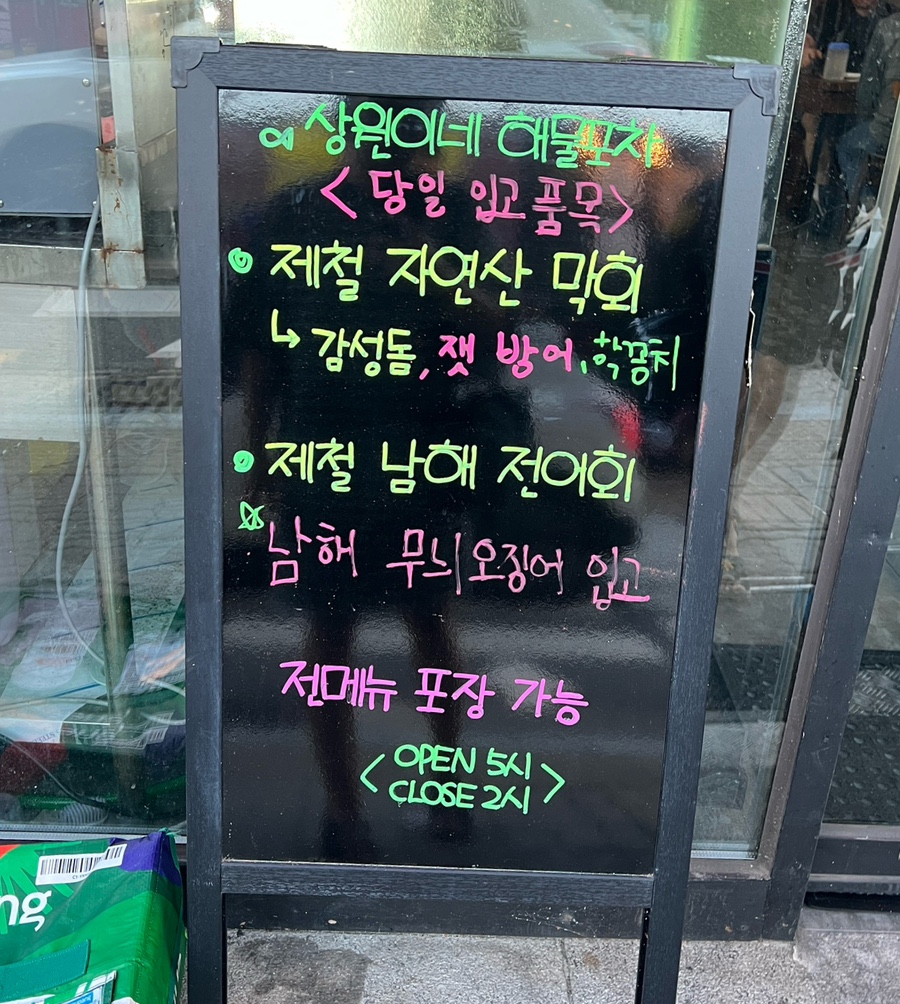 상원이네 해물포차
<당일 입고 품목>
제철 자연산 막회
↳ 감성돔, 잿방어, 학꽁치
제철 남해 전어회
남해 무늬오징어 입고
전메뉴 포장 가능
<OPEN 5시
CLOSE 2시>
ng